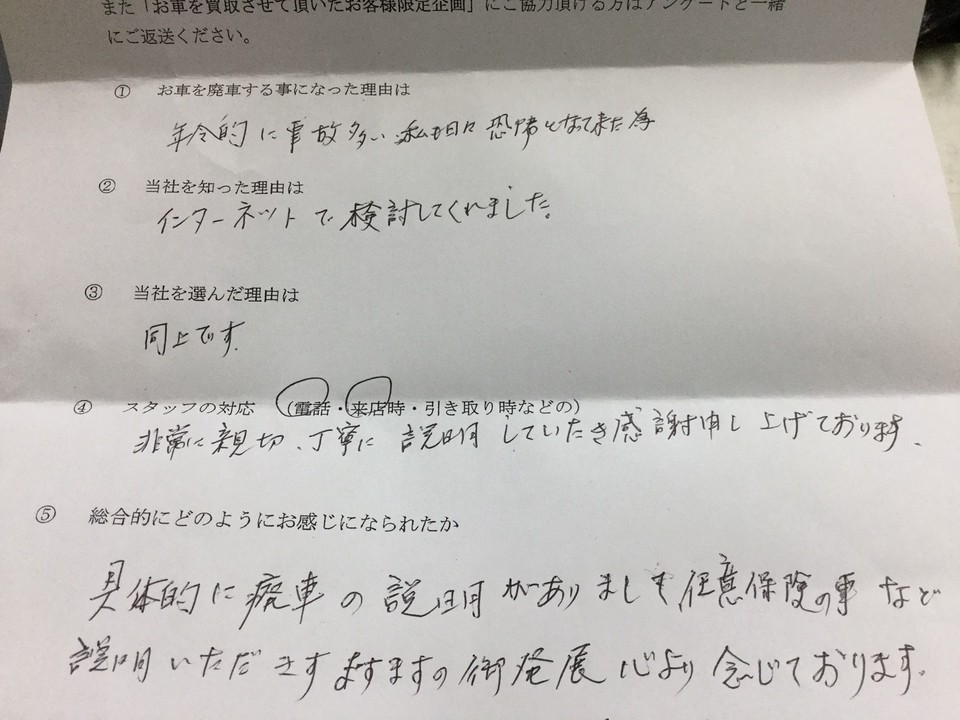 また「お車を買取させて頂いたお客様限定企画」にご協力頂ける方はアンケートと一緒
にご返送ください。
① お車を廃車する事になった理由は
年令的に事故多い私も日々恐怖となって来た為
② 当社を知った理由は
インターネットで検討してくれました。
③ 当社を選んだ理由は
同上です
④ スタッフの対応 (電話・来店時・引き取り時などの)
非常に親切、丁寧に説明していたき感謝申し上げております。
⑤ 総合的にどのようにお感じになられたか
具体的に廃車の説明がありまし 任意保険の事など
説明いただきす ますますの御発展心より念じております。